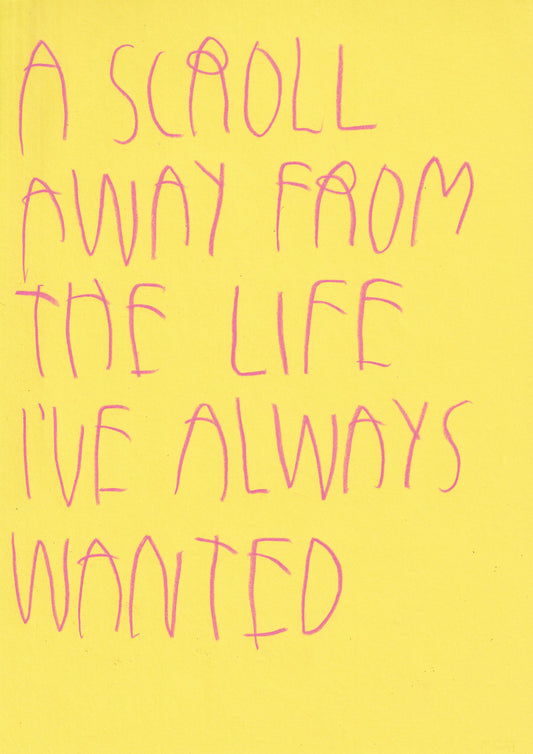 A SCROLL
AWAY FROM
THE LIFE
I'VE ALWAYS
WANTED